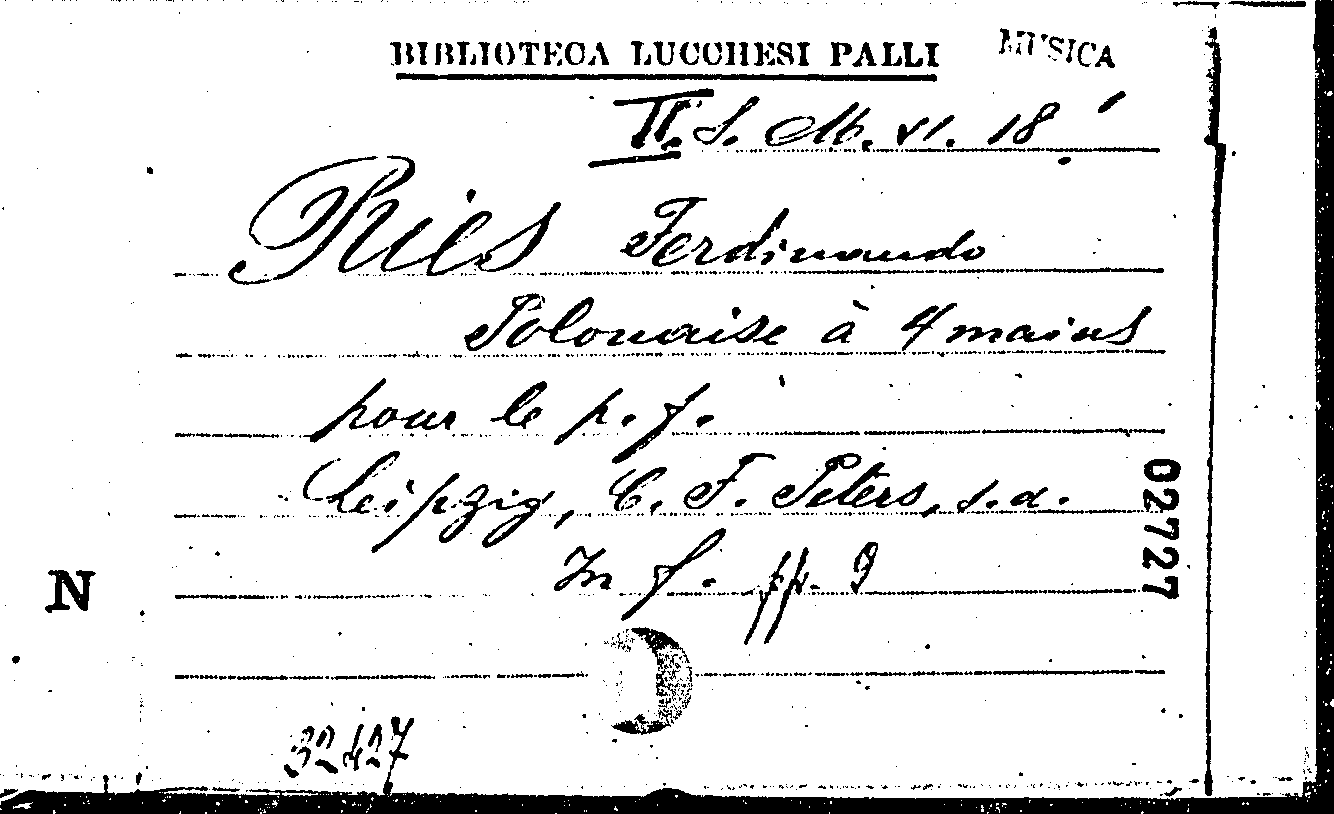 BIBLIOTECA LUCCHESI PALLI MUSICA
II. S. M. VI. 18
Ries Ferdinando
Polonaise à 4 mains
pour le p. f.
Leipzig, C. F. Peters, s. d.
In f. pp. 9
02727
N
32427